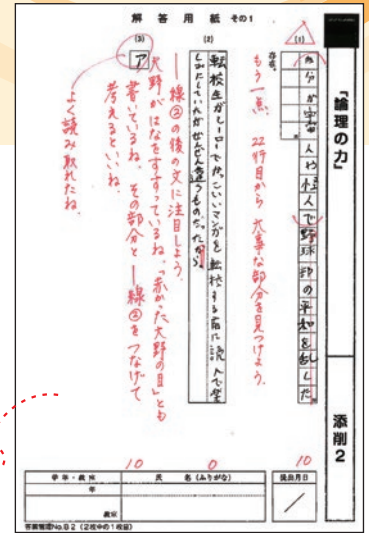 解答用紙 その1
「論理の力」
添削2
提出月日
10
(1)
自分が宇宙人や怪人で野球部の平和を乱した
存在。
もう一点、22行目から大事な部分を見つけよう。
(2)
転校生がヒーローでかっこいいマンガを転校する前に読んで楽
しみにしていたがぜんぜん違うものだったから。
―線②の後の文に注目しよう。
大野がはなをすすっているね。「赤かった大野の目」とも
書いているね。その部分と―線②をつなげて
考えるといいね。
(3)
ア
よく読み取れたね。
10
0
学年・教室
年
教室
氏名(ふりがな)
答案管理No.B2(2枚中の1枚目)